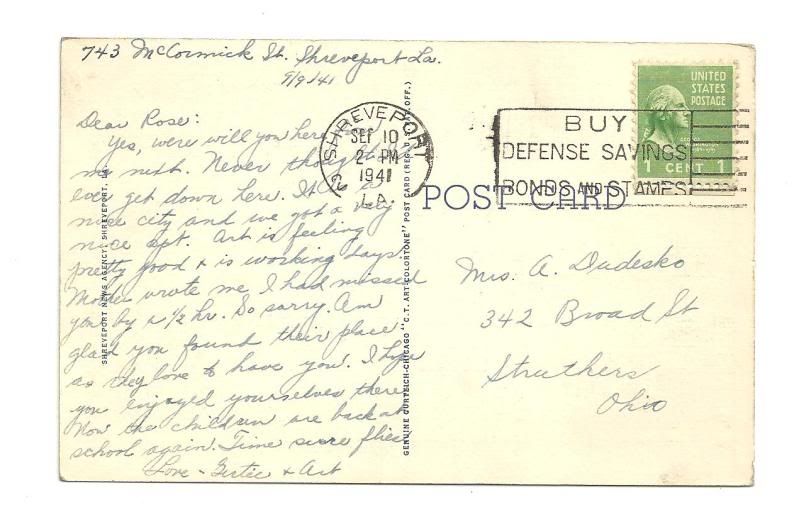 743 McCormick St. Shreveport La.
9/9/41
Dear Rose:
Yes, were will you hear
me next. Never thought I'd
ever get down here. It is
nice city and we got a very
nice apt. Art is feeling
pretty good + is working days.
Mother wrote me I had missed
you by a 1/2 hr. So sorry. Am
glad you found their place
as they love to have you. I hope
you enjoyed yourselves there
Now the children are back at
school again. Time sure flies
Love - Gertie + Art
SHREVEPORT LA.
SEP 10
2 PM
1941
BUY
DEFENSE SAVINGS
BONDS AND STAMPS
UNITED
STATES
POSTAGE
1 CENT 1
POST CARD
Mrs. A. Dudesko
342 Broad St
Struthers
Ohio
SHREVEPORT NEWS AGENCY, SHREVEPORT, LA.
GENUINE CURTEICH-CHICAGO "C.T. ART-COLORTONE" POST CARD (REG. U.S. PAT. OFF.)